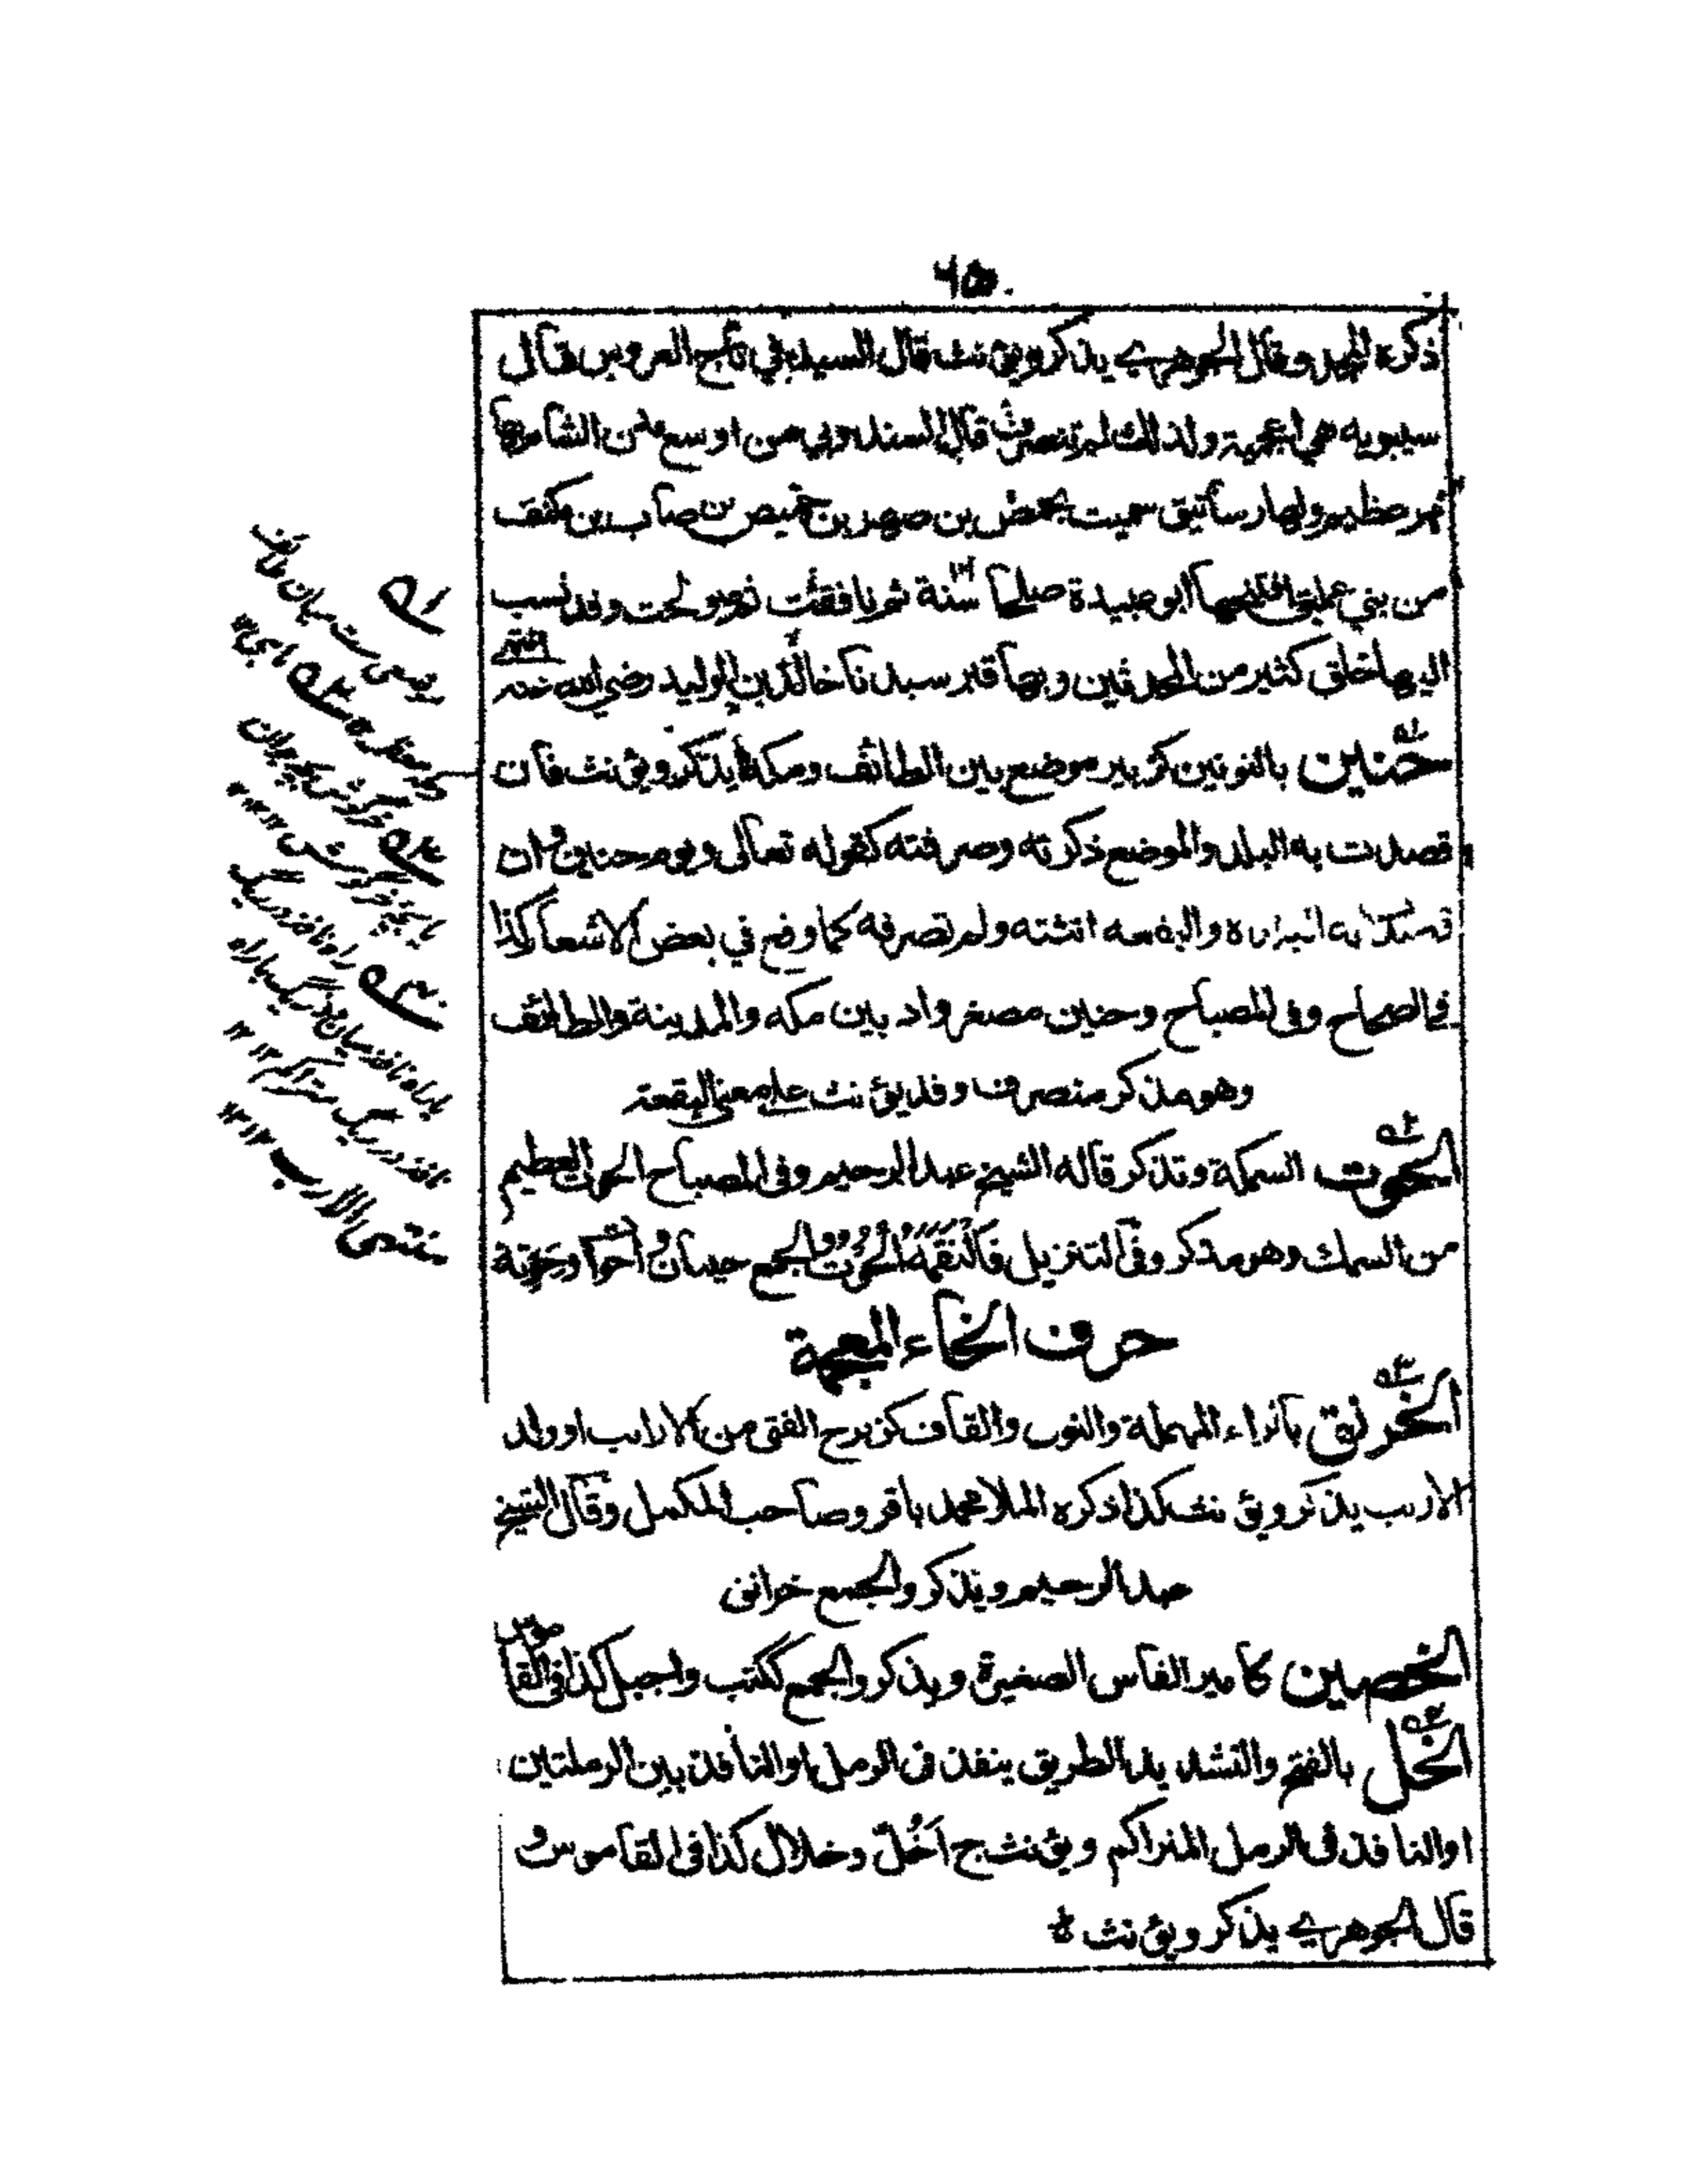 ذكره المجد وقال الجوهري يذكر ويؤنث قال السيد في تاج العروس قال
سيبويه هي اعجمية ولذلك لم تنصرف قال السندوبي من اوسع مدن الشام بها
نهر عظيم ولها رساتيق سميت بحمص بن صهر بن حميص بن صاب بن مكنف
من بني عمليق افتتحها ابوعبيدة صلحا سنة ثم نافقت ثم صولحت وقد نسب
اليها خلق كثير من المحدثين وبها قبر سيدنا خالد بن الوليد رضي الله عنه انتهى
حنين بالنونين كزبير موضع بين الطائف ومكة يذكر ويؤنث فان
قصدت به البلد والموضع ذكرته وصرفته كقوله تعالى ويوم حنين وان
قصدت به البلدة والبقعة انثته ولم تصرفه كما وقع في بعض الاشعار كذا
في الصحاح وفي المصباح وحنين مصغر واد بين مكه والمدينة والطائف
وهو مذكر منصرف وقد يؤنث على معنى البقعة
الحوت السمكة وتذكر قاله الشيخ عبدالرحيم وفي المصباح الحوت العظيم
من السمك وهو مذكر وفي التنزيل فَالْتَقَمَهُ الْحُوْتُ والجمع حيتان و احوات وحوتة
حرف الخاء المعجمة
الخرنق بالراء المهملة والنون والقاف كزبرج الفتى من الارانب او ولد
الارنب يذكر ويؤنث كذا ذكره الملا محمد باقر وصاحب المكمل وقال الشيخ
عبدالرحيم ويذكر والجمع خرانق
الخصين كامير الفاس الصغيرة ويذكر والجمع ككتب واجبل كذا في القاموس
الخل بالفتح والتشديد الطريق ينفذ في الرمل او النافذ بين الرملتين
او النافذ في الرمل المتراكم ويؤنث ج اَخُلّ وخلال كذا في القاموس و
قال الجوهري يذكر ويؤنث
موضعى ست ميان طائف
و مكه معظمه ماهى ١٢
خرگوش بچه جوان
يا بچه خرگوش ١٢
راه نافذ در ريگ
يا راه نافذ ميان دو ريگ يا راه
نافذ در ريگ متراكم ١٢
منتهى الارب ١٢